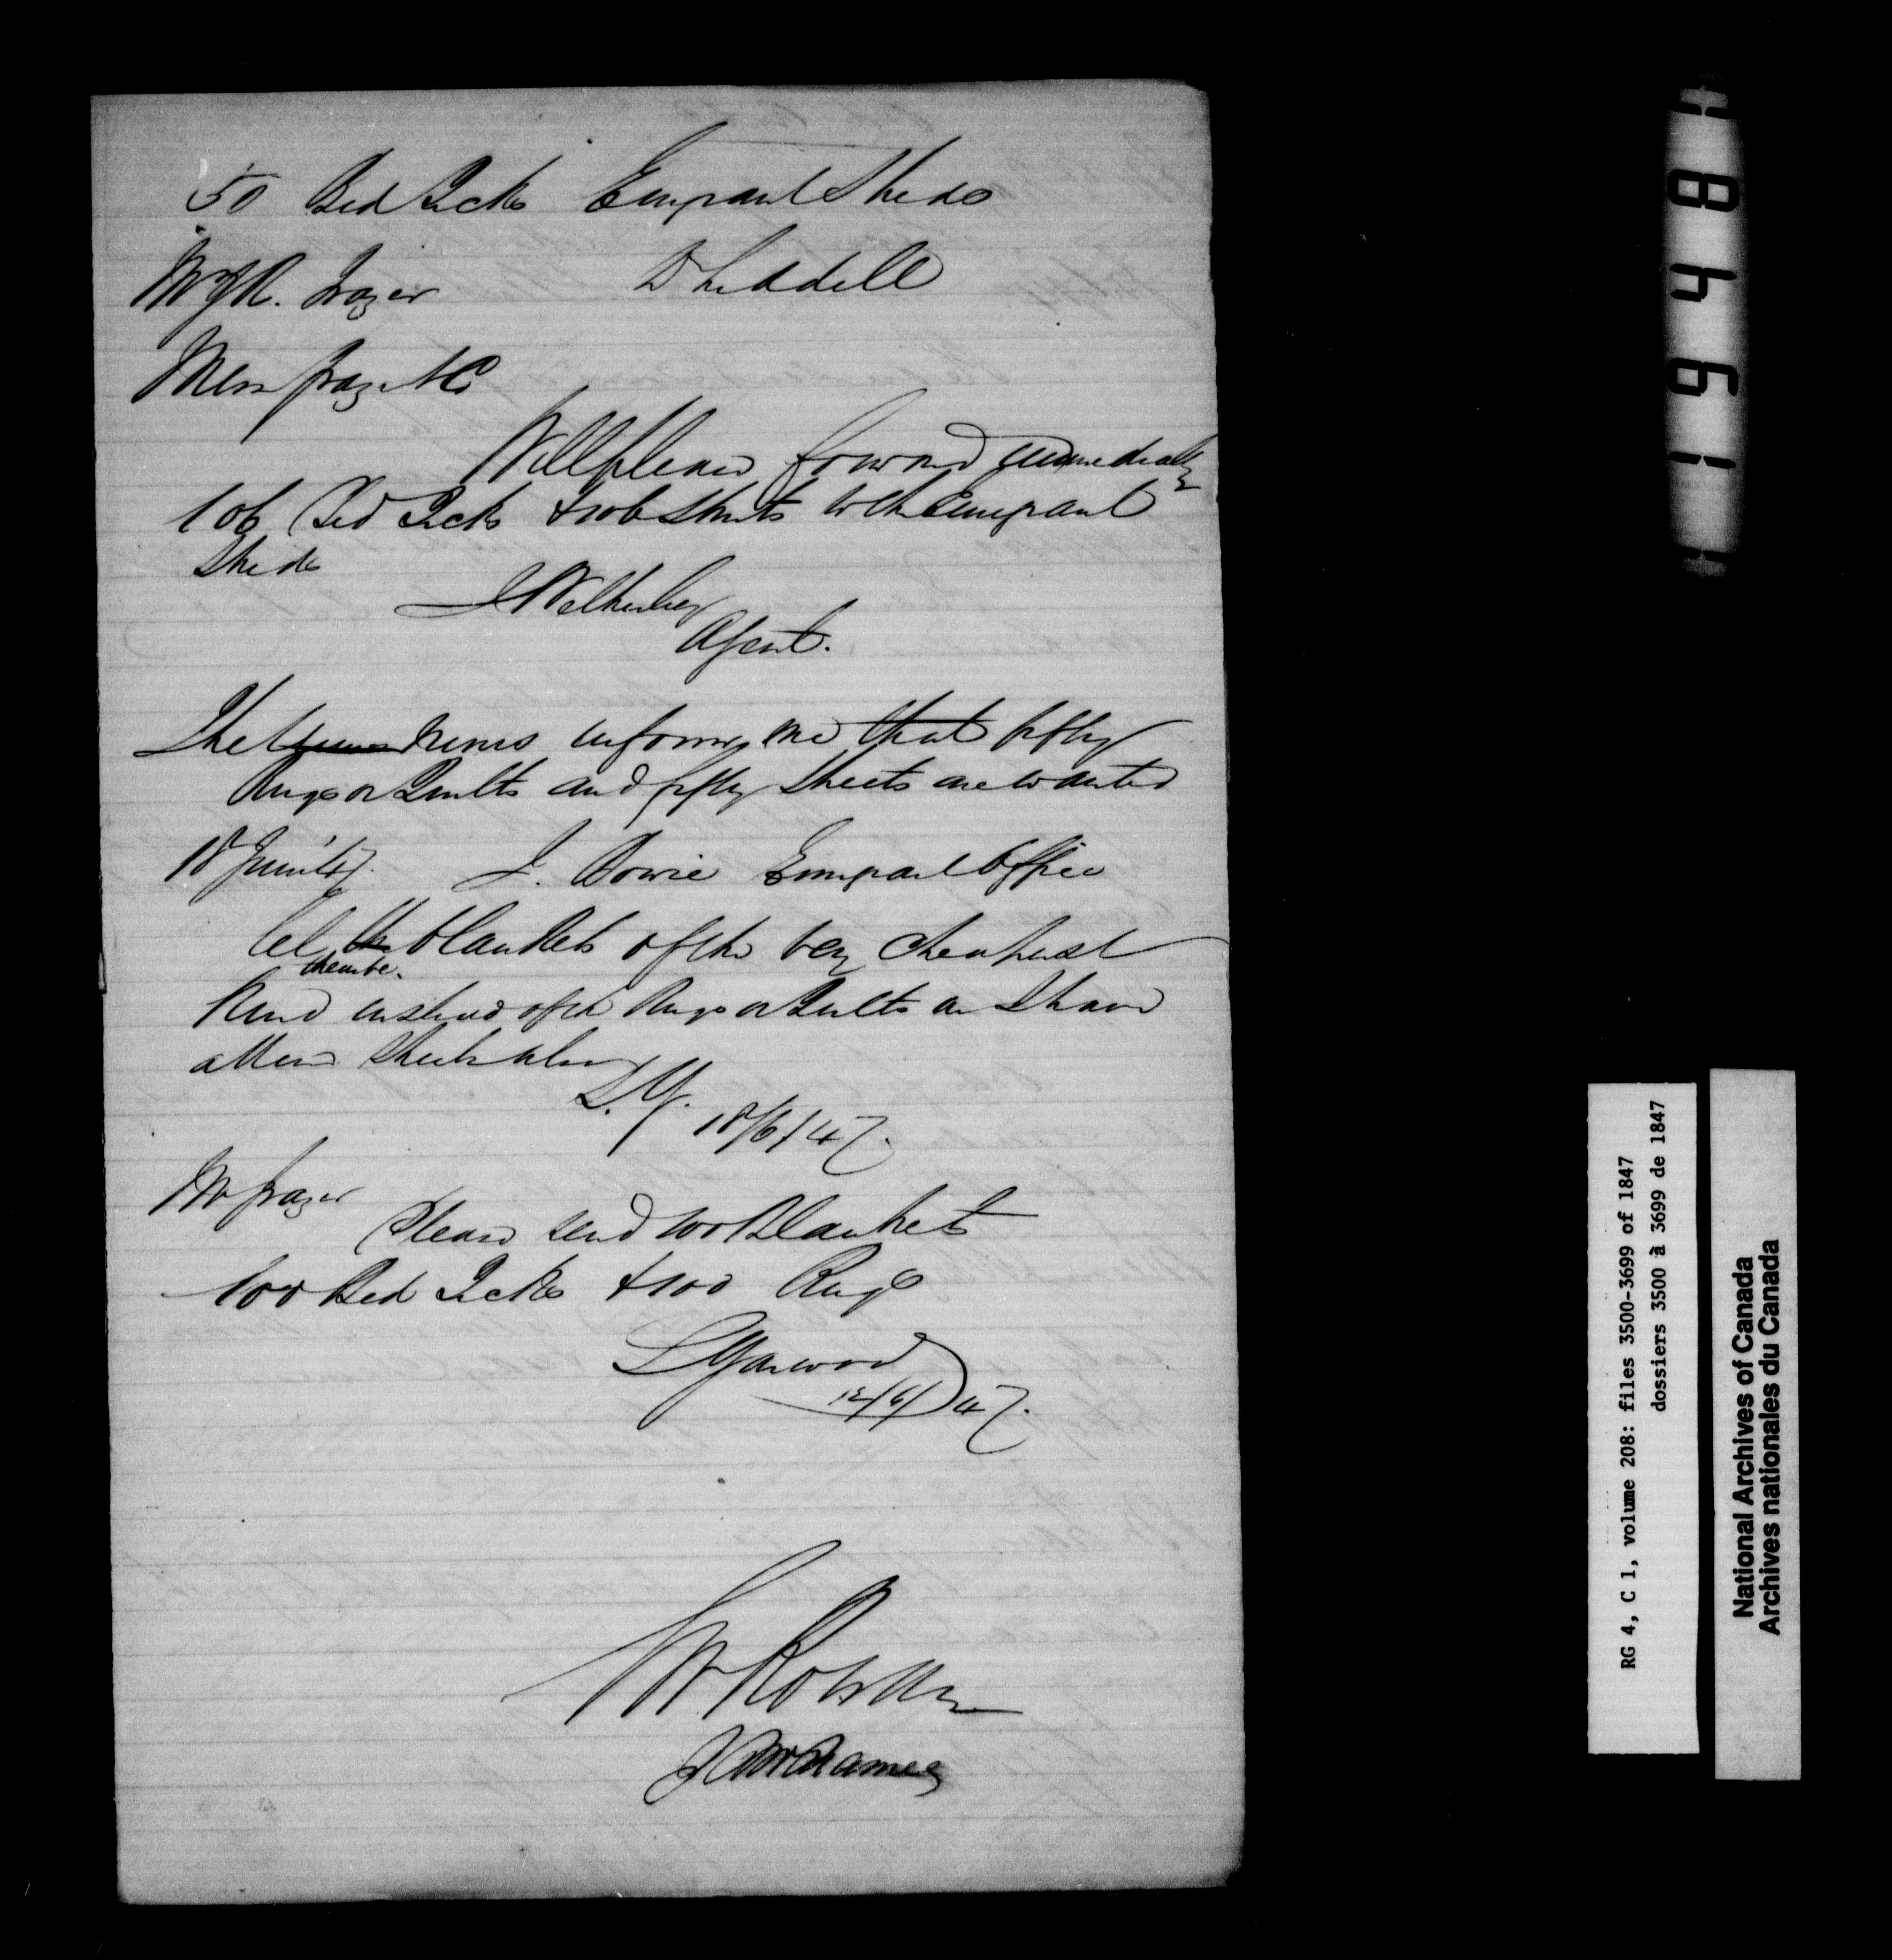 50 Bed Ticks Emigrant Sheds
Mr J R. Frazer D Liddell
Messrs Frazer & Co
Will please forward immediately
106 Bed Ticks & 106 Sheets to the Emigrant
Sheds
Agent.
The Nuns informs me that fifty
Rugs or Quilts and fifty Sheets are wanted
18 June 47. J. Bowie Emigrant Office
Let the blankets of the very cheapest
there be
kind instead of the Rugs or Quilts as I have
Sheets
L.Y. 18/6/47.
Mr Frazer
Please send 100 Blankets
100 Bed Ticks & 100 Rugs
L Yarwood
12/6/47.
J McNamee
16948
RG 4, C 1, volume 208: files 3500-3699 of 1847
dossiers 3500 à 3699 de 1847
National Archives of Canada
Archives nationales du Canada